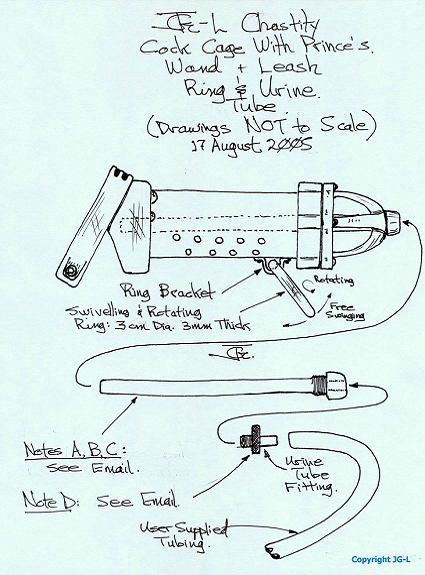 JG-L Chastity
Cock Cage With Prince's
Wand + Leash
Ring & Urine
Tube
(Drawings NOT to Scale)
17 August 2005
Rotating
Ring Bracket
Free
Swinging
Swivelling & Rotating
Ring: 3cm Dia. 3mm Thick
Notes A, B, C:
See Email.
Urine
Tube
Fitting.
Note D: See Email.
User Supplied
Tubing.
Copyright JG-L